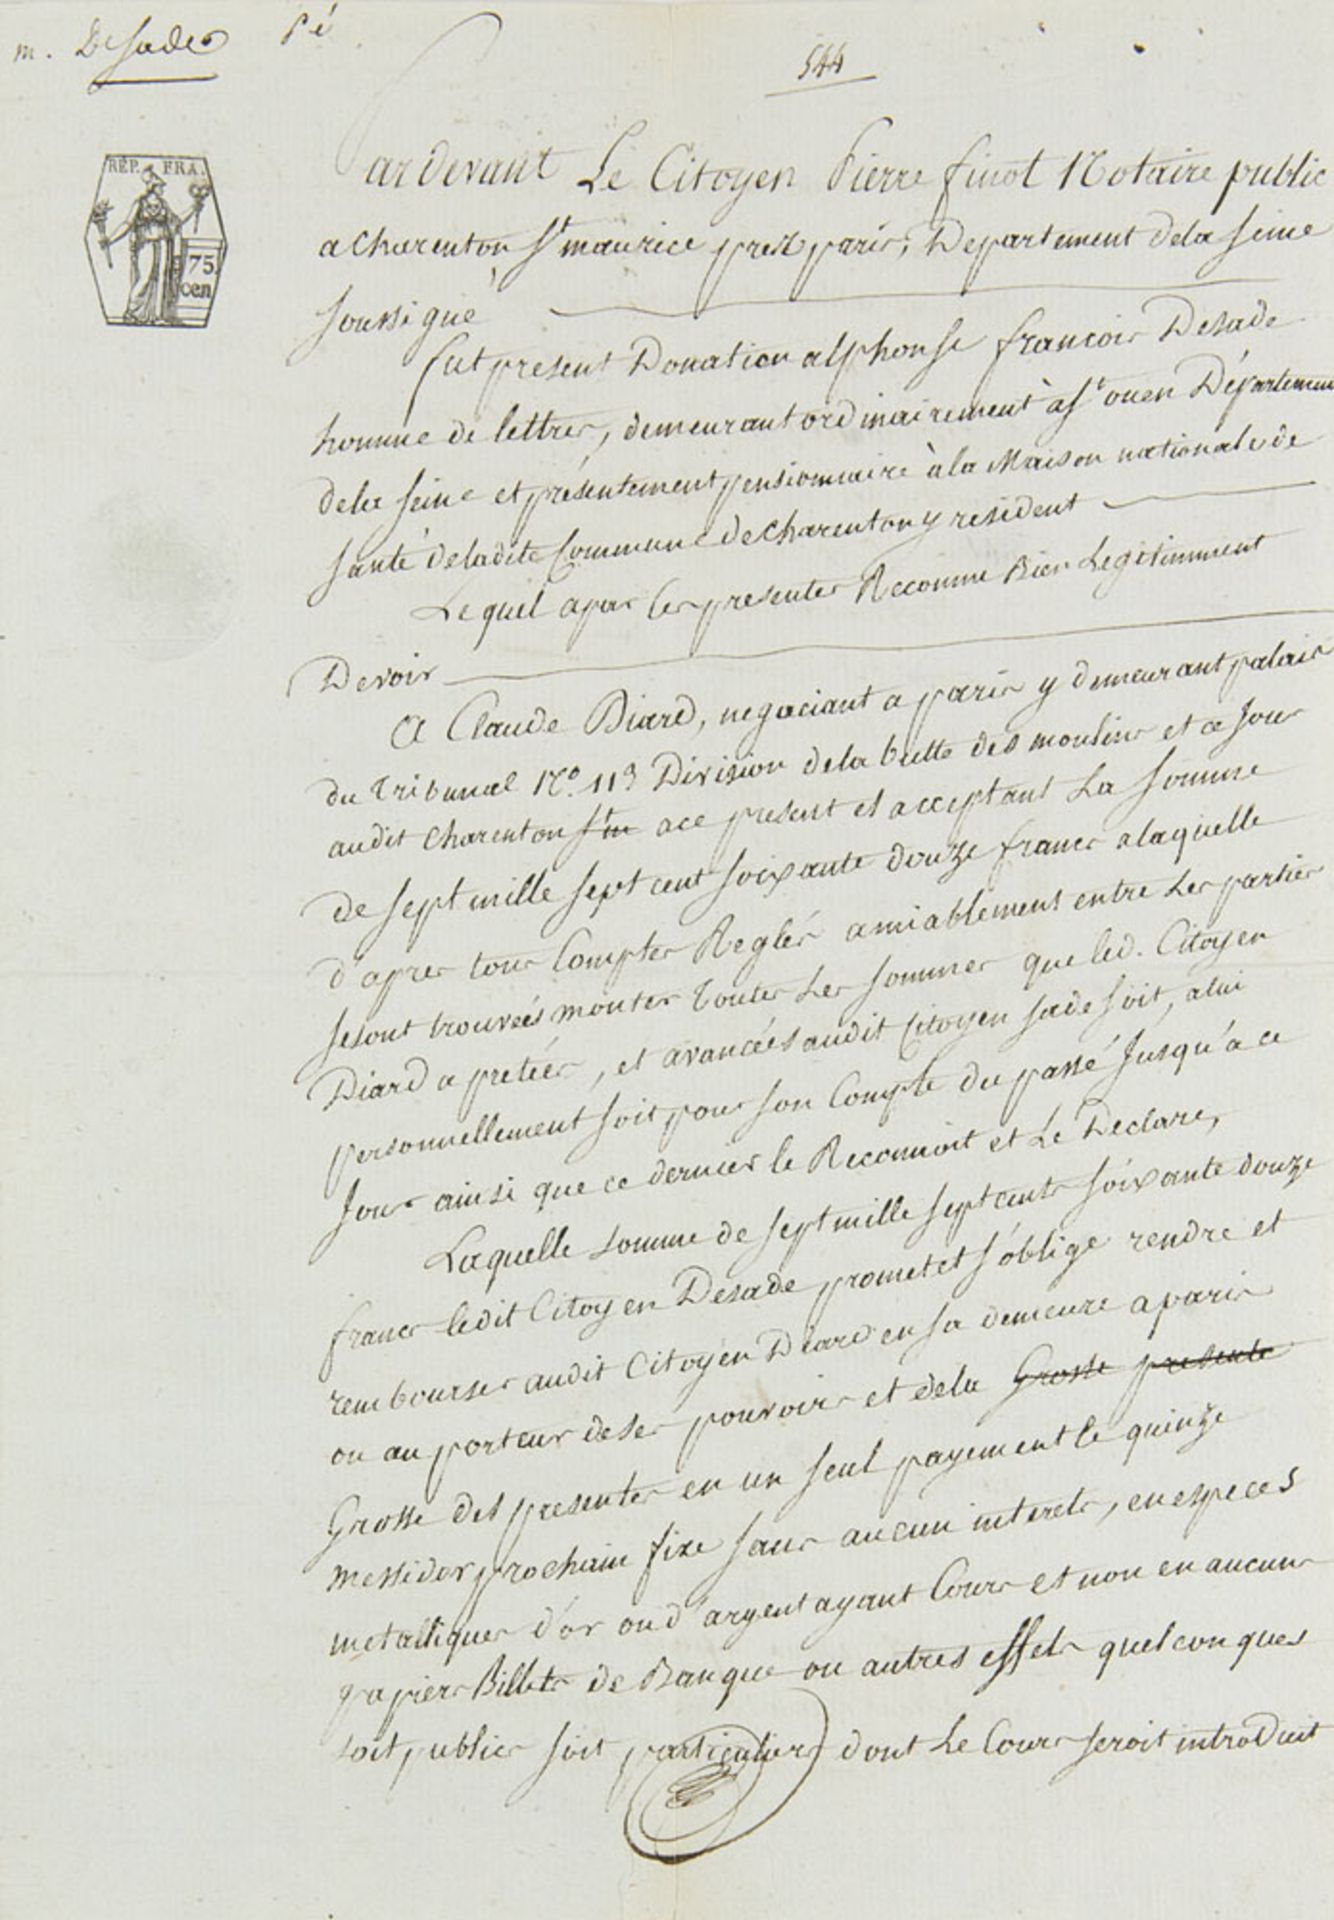 m. DeSade
Pé
544
RÉP. FRA.
75
cen
ardevant Le Citoyen Pierre finot Notaire public
a Charenton St maurice prez paris, Departement dela Seine
Soussigné
fut present Donatien alphonse francois Desade
homme de lettres, demeurant ordinairement à St ouen Département
dela Seine et présentement pensionnaire à la Maison nationale de
santé deladite Commune de Charenton y résident
Lequel apar les presentes Reconnu Bien Legitimment
Devoir
A Claude Diard, negociant a paris y demeurant palais
du Tribunal No. 113 Division de la butte des moulins et ce Jour
audit Charenton St m ace present et acceptant La Somme
de sept mille sept cent soixante douze francs alaquelle
d'apres tous Comptes Reglés amiablement entre Les parties
se sont trouvées monter Toutes Les sommes que led. Citoyen
Diard a pretées, et avancées audit Citoyen sade soit, alui
personnellement soit pour son Compte du passé Jusqu'à ce
Jour ainsi que ce dernier le Reconnoit et Le Declare,
Laquelle somme de sept mille sept cents soixante douze
francs ledit Citoyen Desade promet et s'oblige rendre et
rembourser audit Citoyen Diard en sa demeure a paris
ou au porteur de ses pouvoirs et dela Grosse presente
Grosse des presentes en un seul payement le quinze
messidor prochain fixe sans aucun interets, en especes
metalliques d'or ou d'argent ayant Cours et non en aucuns
papiers Billets de Banque ou autres effets quelconques
soit publics soit particuliers dont Le Cours seroit introduit